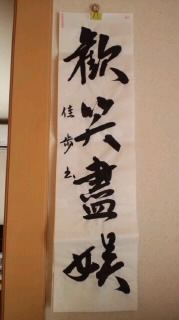 歓笑盡娯
佳歩书